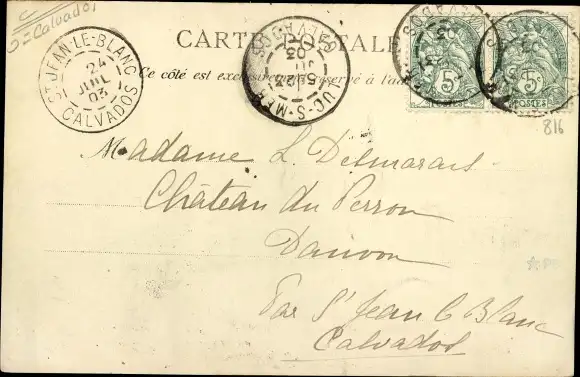 Calvados
CARTE POSTALE
Ce côté est exclusivement réservé à l'adresse
ST JEAN-LE-BLANC
24
JUIL
03
CALVADOS
LUC-S-MER
CALVADOS
5c
POSTES
5c
POSTES
816
Madame L. Delmarais
Château du Perron
Danvou
Par St Jean le Blanc
Calvados